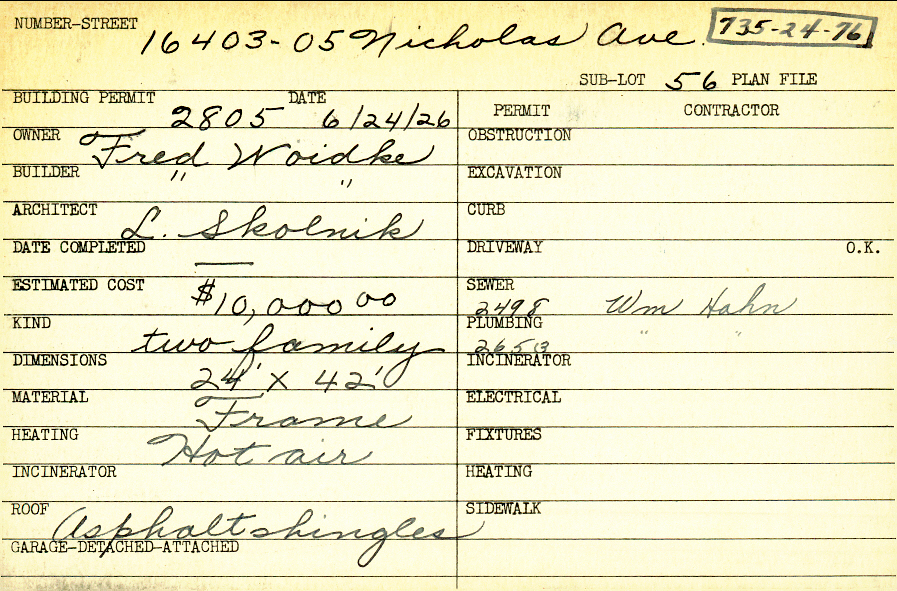 NUMBER-STREET 16403-05 Nicholas Ave. 735-24-76
SUB-LOT 56 PLAN FILE
BUILDING PERMIT 2805 DATE 6/24/26
PERMIT CONTRACTOR
OWNER Fred Woidke
OBSTRUCTION
BUILDER " "
EXCAVATION
ARCHITECT L. Skolnik
CURB
DATE COMPLETED —
DRIVEWAY O.K.
ESTIMATED COST $10,000 00
SEWER 2498 Wm Hahn
KIND two family
PLUMBING " "
DIMENSIONS 24' X 42'
INCINERATOR
MATERIAL Frame
ELECTRICAL
HEATING Hot air
FIXTURES
INCINERATOR
HEATING
ROOF Asphalt shingles
SIDEWALK
GARAGE-DETACHED-ATTACHED